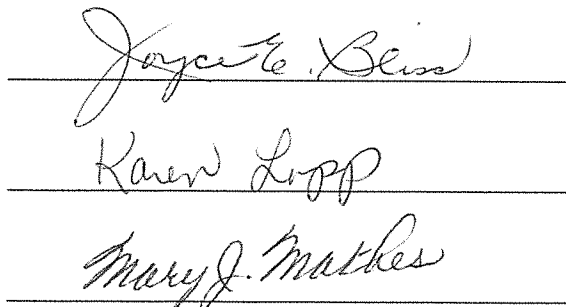 Joyce E. Bliss
Karen Lopp
Mary J. Mathes